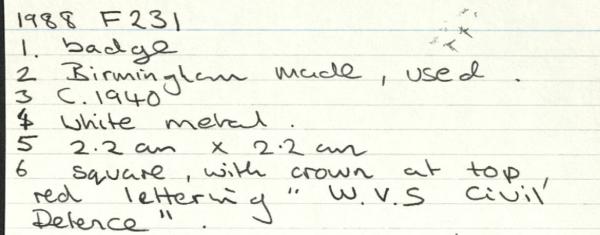 1988 F231
1. badge
2 Birmingham made, used.
3 C.1940
4 White metal.
5 2.2 cm x 2.2 cm
6 square, with crown at top,
red lettering "W.V.S Civil
Defence".